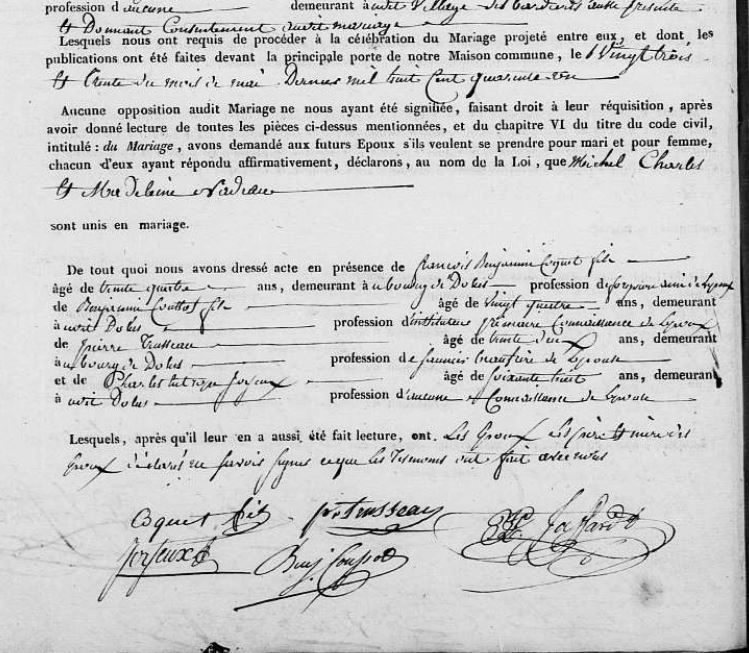 profession d'aucune demeurant à audit Village des
et Donnant Consentement audit mariage
Lesquels nous ont requis de procéder à la célébration du Mariage projeté entre eux, et dont les
publications ont été faites devant la principale porte de notre Maison commune, le Vingt trois
et trente du mois de mai Dernier mil huit Cent quarante un
Aucune opposition audit Mariage ne nous ayant été signifiée, faisant droit à leur réquisition, après
avoir donné lecture de toutes les pièces ci-dessus mentionnées, et du chapitre VI du titre du code civil,
intitulé : du Mariage, avons demandé aux futurs Epoux s'ils veulent se prendre pour mari et pour femme,
chacun d'eux ayant répondu affirmativement, déclarons, au nom de la Loi, que Michel Charles
et Madeleine
sont unis en mariage.
De tout quoi nous avons dressé acte en présence de François Benjamin Coquet fils
âgé de trente quatre ans, demeurant à au bourg de Dolus profession d ami de
de Benjamin fils âgé de vingt quatre ans, demeurant
à audit Dolus profession d'instituteur primaire Connaissance de
de pierre Trusseau âgé de trente deux ans, demeurant
à au bourg de Dolus profession de saunier de
et de Charles Joyeux âgé de soixante huit ans, demeurant
à audit Dolus profession d'aucune Connaissance de
Lesquels, après qu'il leur en a aussi été fait lecture, ont. Les père et mère des
déclaré ne savoir signer ce que les Témoins ont fait avec nous
Coquet fils pre trusseau
Joyeux Benj.